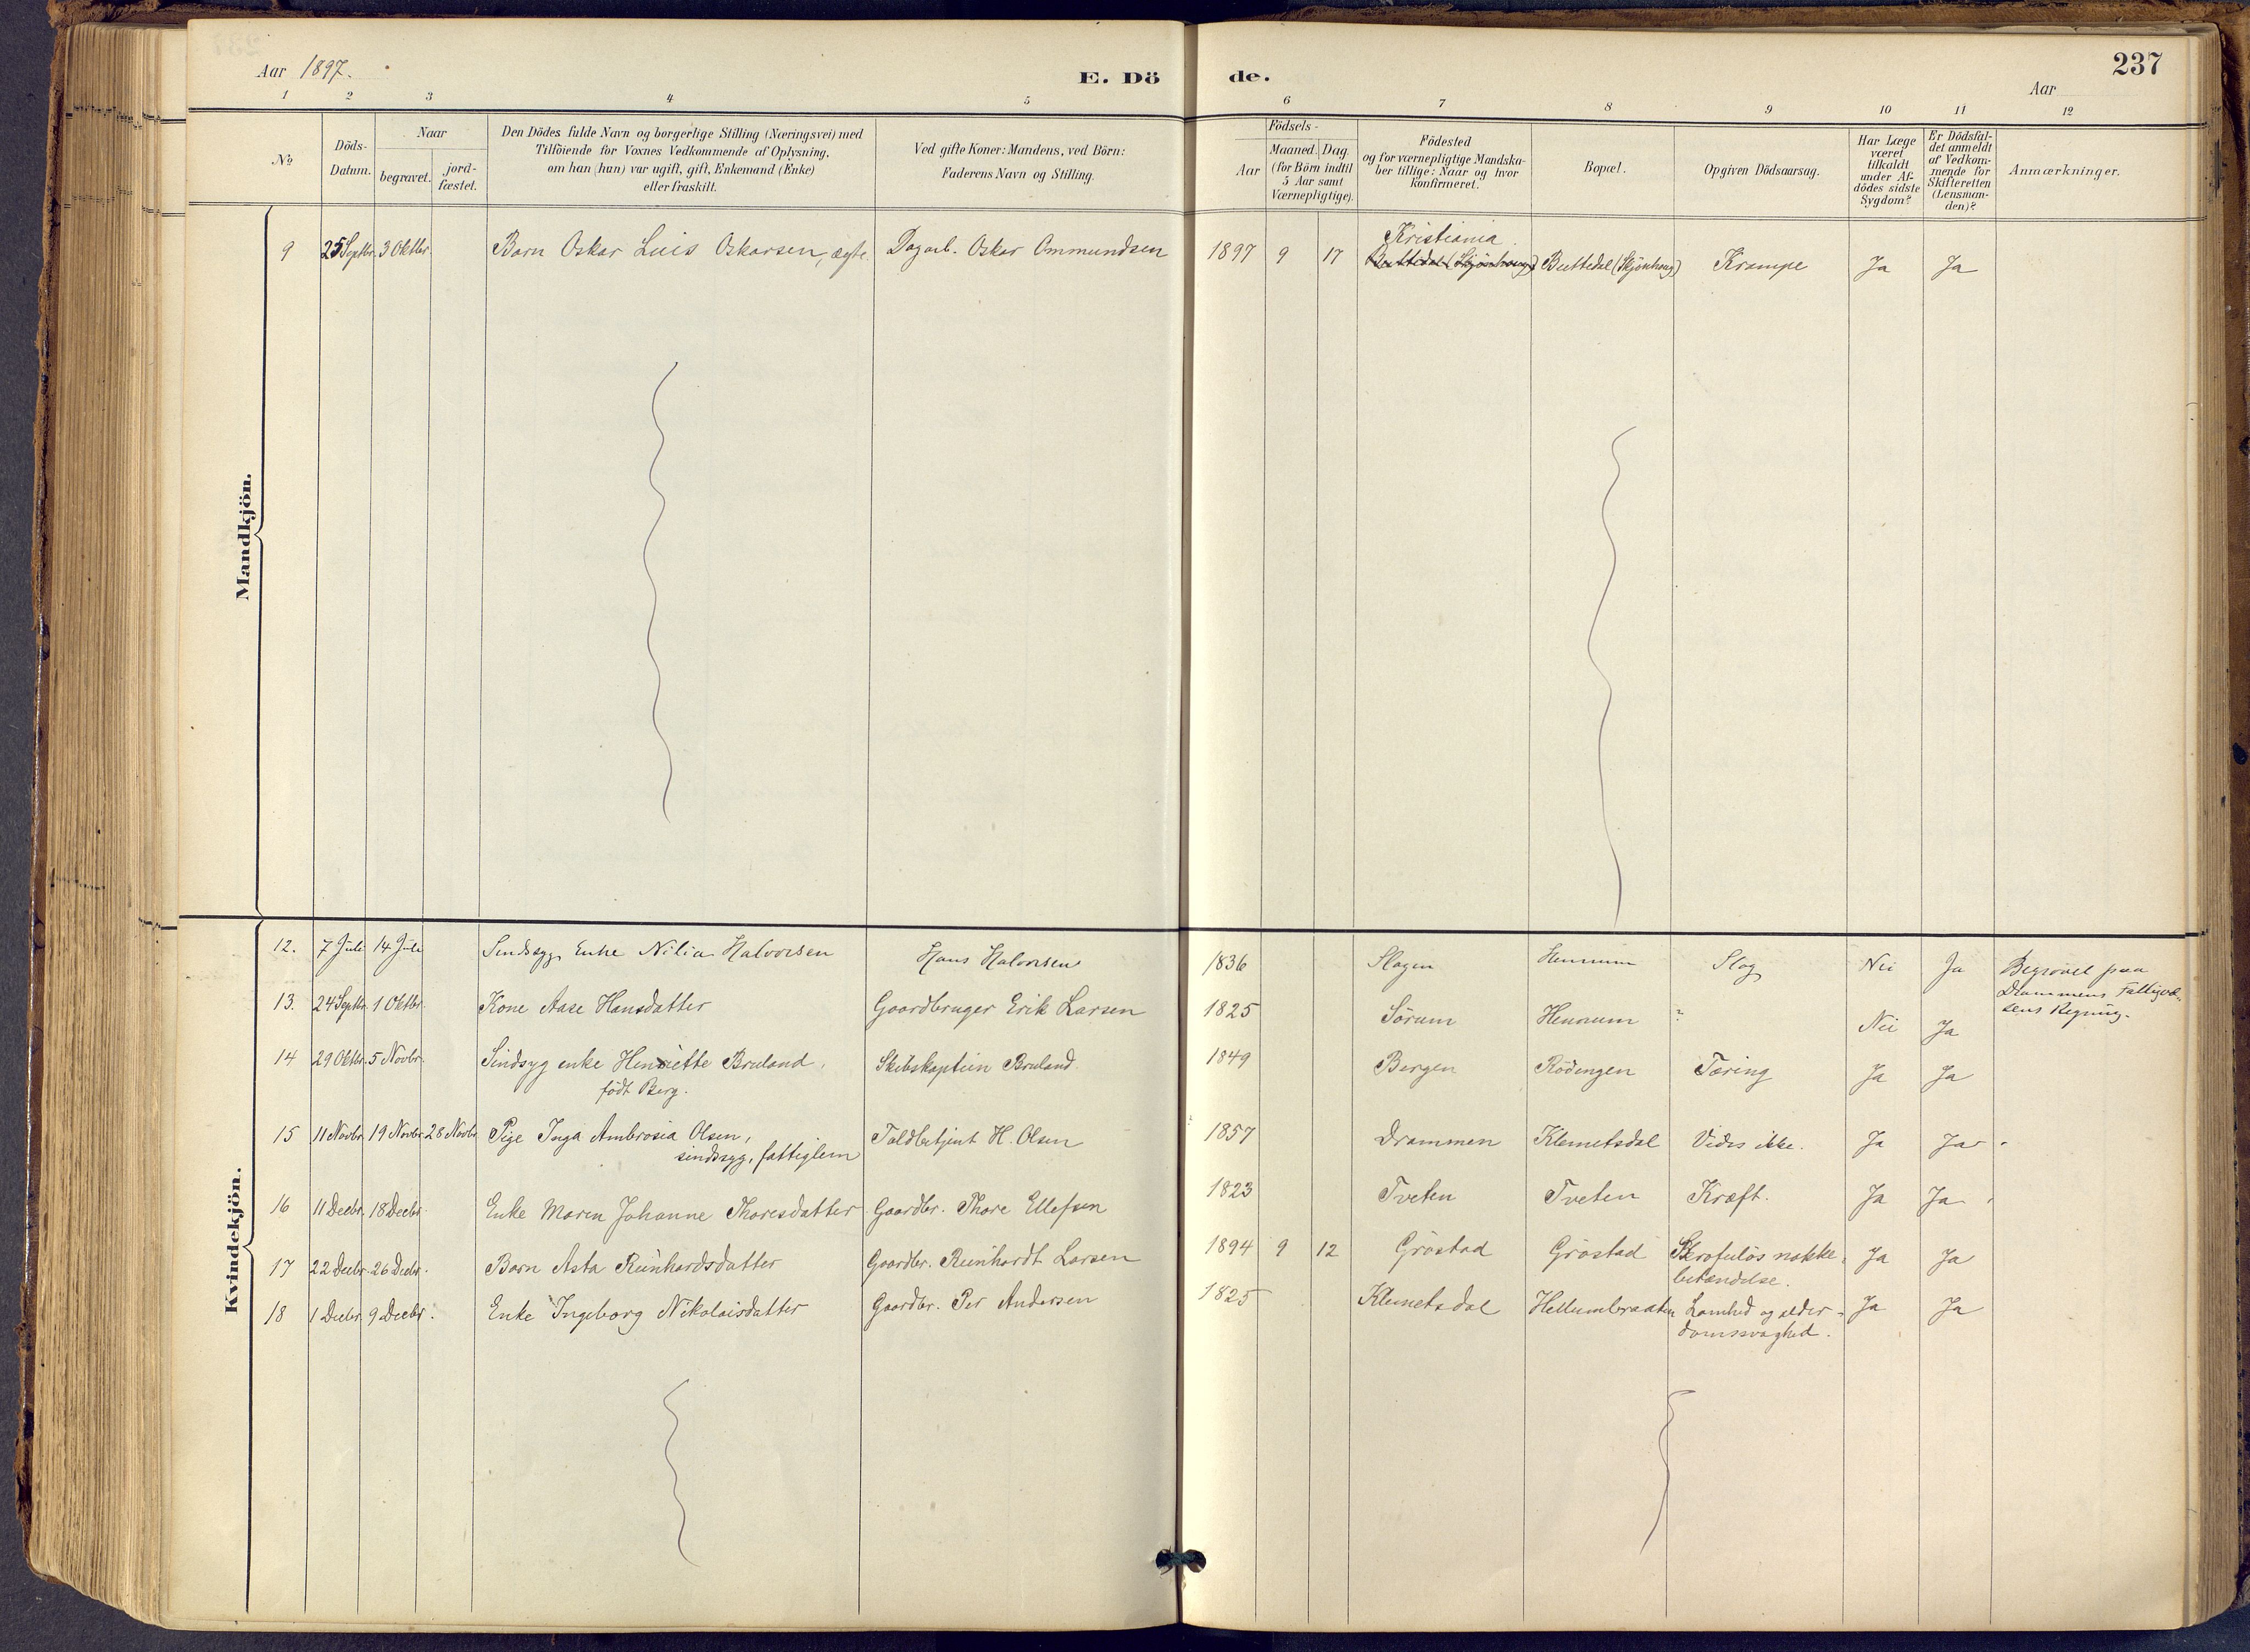 Aar 1897.
E. Dö
de.
237
Aar
1 2 3 4 5 6 7 8 9 10 11 12
No
Döds-
Datum.
Naar
begravet.
jord-
fæstet.
Den Dödes fulde Navn og borgerlige Stilling (Næringsvei) med
Tilföiende for Voxnes Vedkommende af Oplysning,
om han (hun) var ugift, gift, Enkemand (Enke)
eller fraskilt.
Ved gifte Koner: Mandens, ved Börn:
Faderens Navn og Stilling.
Födsels-
Aar
Maaned. Dag.
(for Börn indtil
5 Aar samt
Værnepligtige).
Födested
og for værnepligtige Mandska-
ber tillige: Naar og hvor
konfirmeret.
Bopæl.
Opgiven Dödsaarsag.
Har Læge
været
tilkaldt
under Af-
dödes sidste
Sygdom?
Er Dödsfal-
det anmeldt
af Vedkom-
mende for
Skifteretten
(Lensman-
den)?
Anmærkninger.
Mandkjön.
Kristiania.
9 25 Septbr. 3 Oktbr. Barn Oskar Luis Oskarsen, ægte. Dagarb. Oskar Ommundsen 1897 9 17 Buttedal (Skjönhaug) Buttedal (Skjönhaug) Krampe Ja Ja
Kvindekjön.
12. 7 Juli 14 Juli Sindssyg Enke Nilia Halvorsen Hans Halvorsen 1836 Slagen Hennum Slag Nei Ja Begravet paa
Drammens Fattigvæ-
sens Regning.
13. 24 Septbr. 1 Oktbr. Kone Aase Hansdatter Gaardbruger Erik Larsen 1825 Sörum Hennum ? Nei Ja
14 29 Oktbr. 5 Novbr. Sindsyg enke Henriette Bruland, Skibskaptein Bruland. 1849 Bergen Rödengen Tæring Ja Ja
födt Berg.
15 11 Novbr. 19 Novbr. 28 Novbr. Pige Inga Ambrosia Olsen, Toldbetjent H. Olsen 1857 Drammen Klemetsdal Vides ikke. Ja Ja
sindssyg, fattiglem
16 11 Decbr. 18 Decbr. Enke Maren Johanne Thoresdatter Gaardbr. Thore Ellefsen 1823 Tveten Tveten Kræft. Ja Ja
17 22 Decbr. 26 Decbr. Barn Asta Reinhardsdatter Gaardbr. Reinhardt Larsen 1894 9 12 Gröstad Gröstad Skrofulös nakke- Ja Ja
betændelse.
18 1 Decbr. 9 Decbr. Enke Ingeborg Nikolaisdatter Gaardbr. Per Andersen 1825 Klemetsdal Hellumbraaten Lamhed og alder- Ja Ja
domssvaghed.